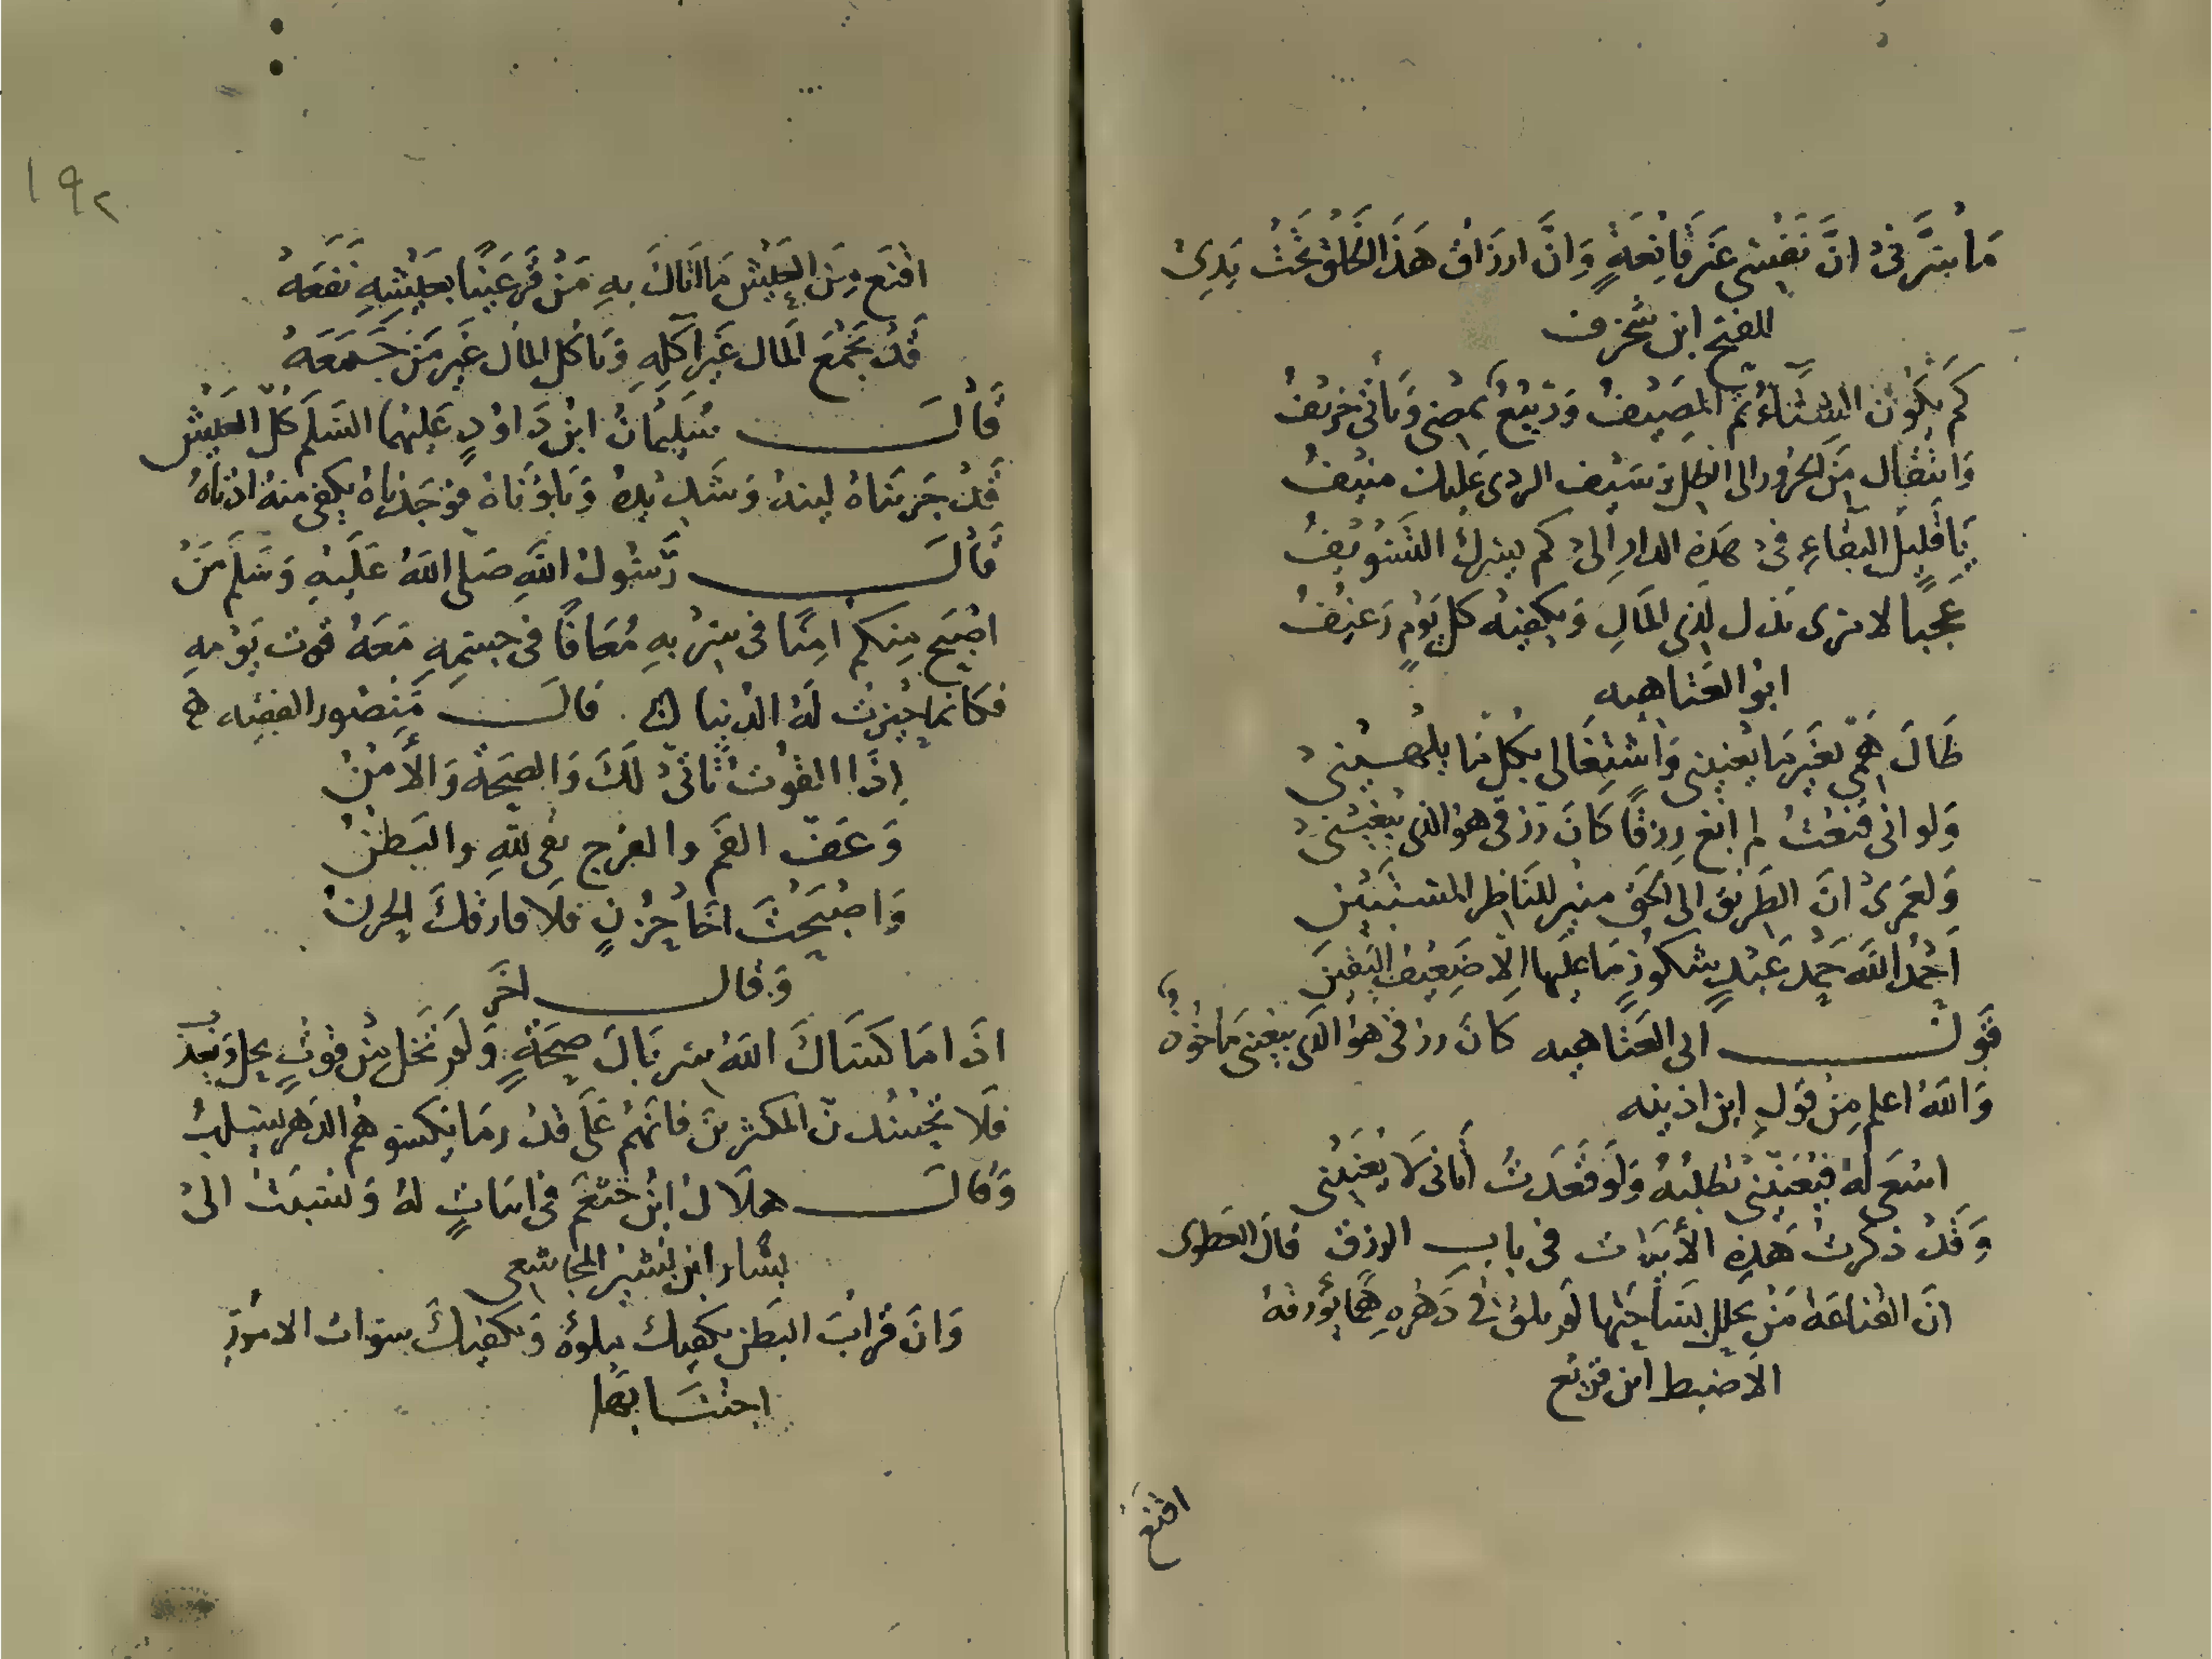 مَا سَرَّني انَّ نَفْسي غَير قَانِعَةٍ وَانَّ ارزَاق هَذَا الخَلْق تَحْتُ يَدِي
للفتح ابن شخرف
كم يَكُون الشتَاءُ ثم المصَيْفُ وَرَبيعٌ يمضي وَيَأتي خَرِيفُ
وَانتقَال مِنَ الحرُور الى الظل وَسَيف الردى عَليك منيفُ
يَا قَليل البَقَاءِ في هَذه الدار الى كم يغرك التَسْويفُ
عَجبا لامرى يَذل لذى المَالِ وَيكفيه كل يَوْمٍ رَغيْفُ
ابو العَتَاهيه
طَالَ هَمّي بغَير مَا يَعْنيني وَاشتِغَالى بكُل مَا يلهيني
وَلو اني قنعْتُ لم ابْغ رِزقًا كَانَ رزقي هوَ الذي يَبغيني
وَلعَمرِي انَّ الطَريق الى الحَق منير للنَاظر المستَبين
اَحْمَدُ اللهَ حَمْد عَبْدٍ شكورٍ مَا عَليها الا ضَعِيف اليَقينَ
قَول ابى العَتَاهيه كَانَ رزقي هوَ الذي يبغيني مَاخُوذٌ
وَاللهُ اعلم مِن قَول ابن اذينه
اسْعَى لهُ فيُعَنّيني تطلبُهُ وَلَو قَعَدتُ أتَاني لَا يُعَنّيني
وَقَدْ ذكرتُ هَذِهِ الأبيَات في باب الرزق قالَ العَطوى
انَّ القنَاعَة مَنْ يحلل بسَاحَتِهَا لم يلق في دَهْرِهِ هَمًا يُؤرقهُ
الاضبط ابن قريع
اقنَع
١٩٢
اقنَع مِنَ العَيْش مَا اتَاكَ بهِ مَنْ قَرَّ عَينًا بعَيْشِهِ نَفَعَهُ
قَدْ يَجْمَعُ المَال غَير آكلِهِ وَيَأكل المَال غَيْر مَنْ جَمَعَهُ
قَالَ سُلَيمَانُ ابنُ دَاوُدٍ عَليهما السَلَم كُلّ العَيْش
قَدْ جَربنَاهُ لينهُ وَشَديدهُ وَبَلوْنَاهُ فوَجَدنَاهُ يكفي منهُ ادنَاهُ
قَالَ رَسُولُ اللهِ صَلى اللهُ عَلَيهِ وَسَلَم مَنْ
اصْبَح مِنكم امِنًا في سِرْبهِ مُعَافًا في جسْمِهِ مَعَهُ قوت يَوْمهِ
فكَانما حيزتْ لَهُ الدُنيا قالَ مَنصُور الفقيه
اِذَا القُوتُ تَأتّى لَكَ وَالصِحَة وَالأمْنُ
وَعَفّ الفَم والفرج تقى للهِ والبَطنُ
وَاصْبَحْتَ اخَا حُزْنٍ فلَا فارقكَ الحزنُ
وَقال اخَر
اذَا مَا كسَاكَ اللهُ سربَالَ صِحَةٍ وَلم تخَل من قوتٍ يحل وَيعذبُ
فلَا تَحْسُدنّ المكثرين فَانهُم عَلَى قدْر مَا يكسوهُم الدَهر يسلبُ
وَقالَ هلَال ابْنُ خثعَم في ابيَاتٍ لهُ وَنسبَتْ الىْ
بشار ابن بشير المجَاشعي
وَانَ قرَابَ البَطن يكفيك ملؤهُ وَيكفيكَ سوءات الامورِ
اجتنَابهَا